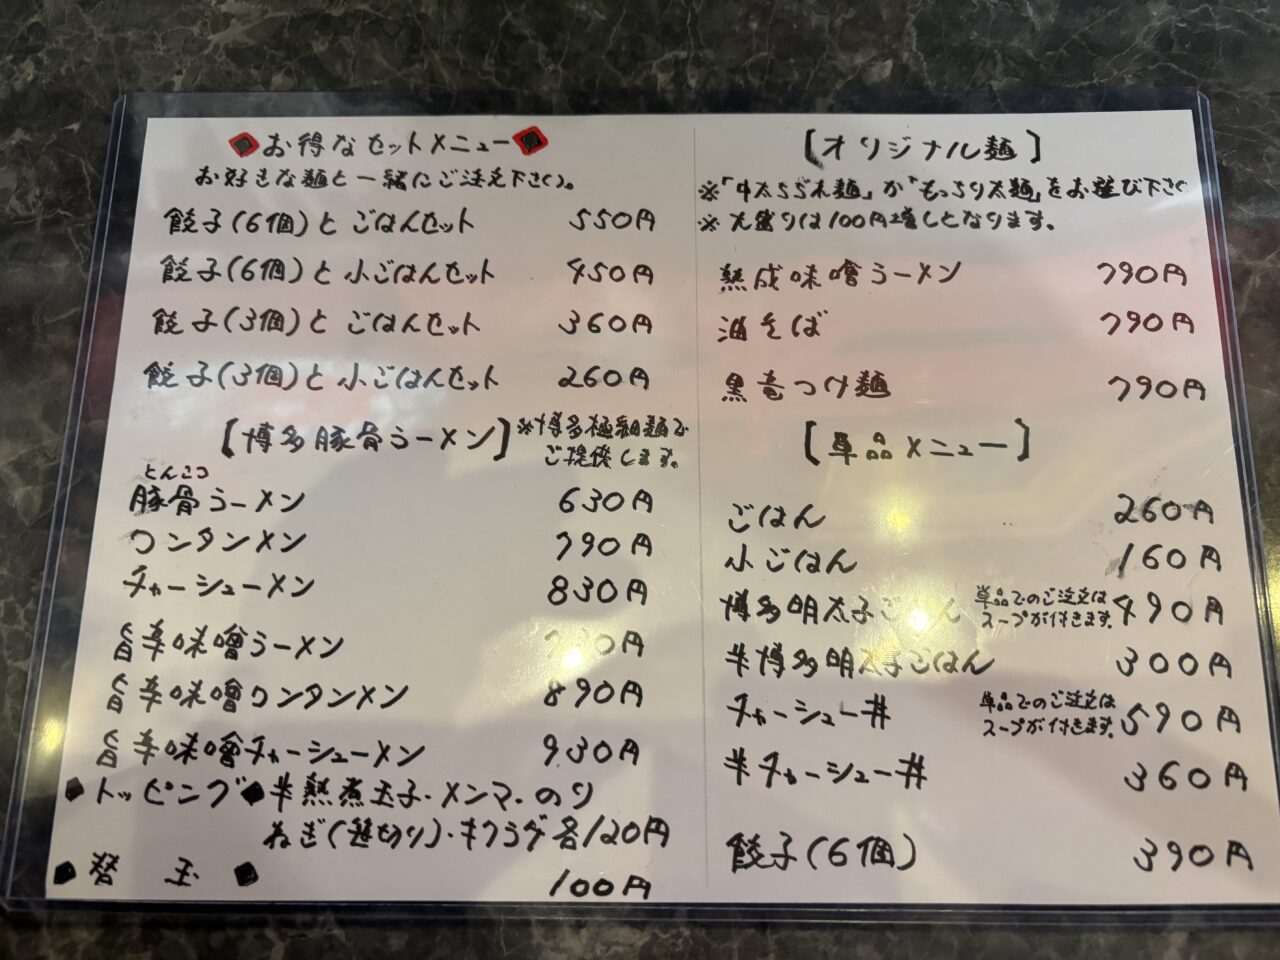 ◆お得なセットメニュー◆
お好きな麺と一緒にご注文下さい。
餃子(6個)と ごはんセット 550円
餃子(6個)と 小ごはんセット 450円
餃子(3個)と ごはんセット 360円
餃子(3個)と 小ごはんセット 260円
【博多豚骨ラーメン】 ※博多極細麺で
ご提供します。
とんこつ
豚骨ラーメン 630円
ワンタンメン 790円
チャーシューメン 830円
旨辛味噌ラーメン 円
旨辛味噌ワンタンメン 890円
旨辛味噌チャーシューメン 930円
◆トッピング◆半熟煮玉子・メンマ・のり
ねぎ( 切り)・キクラゲ 各120円
◆替 玉◆ 100円
【オリジナル麺】
※「中太ちぢれ麺」か「もっちり太麺」をお選び下さ
※大盛りは100円増しとなります。
熟成味噌ラーメン 790円
油そば 790円
黒竜つけ麺 790円
【単品メニュー】
ごはん 260円
小ごはん 160円
博多明太子ごはん 単品でのご注文は
スープが付きます。 490円
半博多明太子ごはん 300円
チャーシュー丼 単品でのご注文は
スープが付きます。 590円
半チャーシュー丼 360円
餃子(6個) 390円